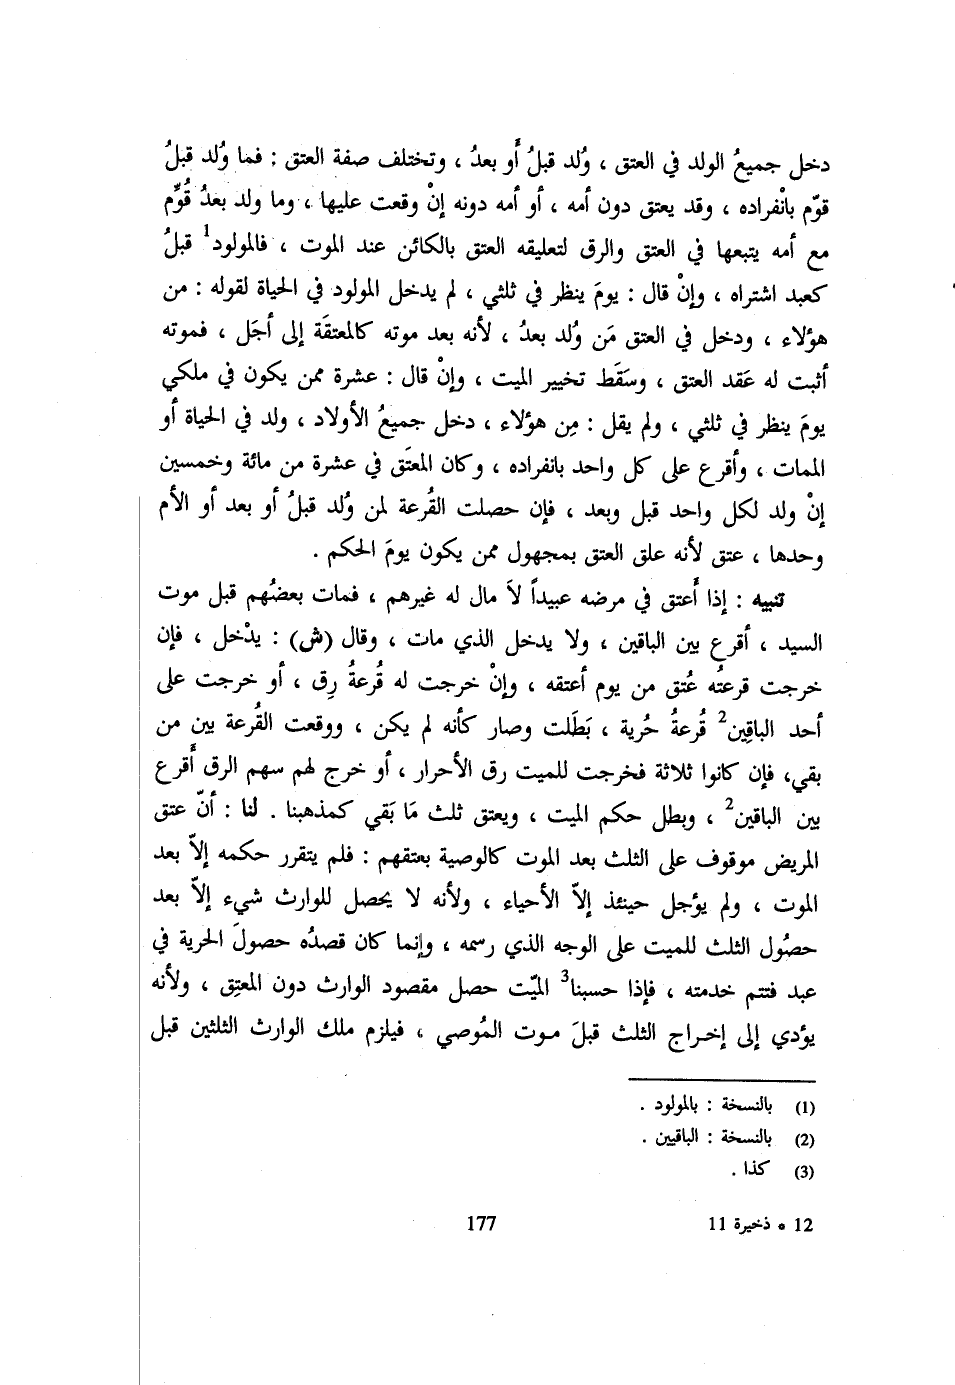 دخل جميعُ الولد في العتق ، وُلد قبلُ أَو بعدُ ، وتختلف صفة العتق : فما وُلد قبلُ
قوّم بانْفراده ، وقد يعتق دون أمه ، أو أمه دونه إنْ وقعت عليها ، وما ولد بعدُ قُوِّم
مع أمه يتبعها في العتق والرق لتعليقه العتق بالكائن عند الموت ، فالمولود1 قبلُ
كعبد اشتراه ، وإنْ قال : يومَ ينظر في ثلثي ، لم يدخل المولود في الحياة لقوله : من
هؤلاء ، ودخل في العتق مَن وُلد بعدُ ، لأنه بعد موته كالمعتقَة إلى أجَل ، فموته
أثبت له عَقد العتق ، وسَقَط تخيير الميت ، وإنْ قال : عشرة ممن يكون في ملكي
يومَ ينظر في ثلثي ، ولم يقل : مِن هؤلاء ، دخل جميعُ الأولاد ، ولد في الحياة أو
الممات ، وأقرع على كل واحد بانفراده ، وكان المعتَق في عشرة من مائة وخمسين
إنْ ولد لكل واحد قبل وبعد ، فإن حصلت القُرعة لمن وُلد قبلُ أو بعد أو الأم
وحدها ، عتق لأنه علق العتق بمجهول ممن يكون يومَ الحكم .
تنبيه : إذا أَعتق في مرضه عبيداً لاَ مال له غيرهم ، فمات بعضُهم قبل موت
السيد ، أقرع بين الباقين ، ولا يدخل الذي مات ، وقال (ش) : يدْخل ، فإن
خرجت قرعتُه عُتق من يوم أعتقه ، وإنْ خرجت له قُرعةُ رِق ، أو خرجت على
أحد الباقِين2 قُرعةُ حُرية ، بَطَلت وصار كأنه لم يكن ، ووقعت القُرعة بين من
بقي، فإن كانوا ثلاثة فخرجت للميت رق الأحرار ، أو خرج لهم سهم الرق أَقرع
بين الباقين2 ، وبطل حكم الميت ، ويعتق ثلث مَا بَقي كمذهبنا . لنا : أنّ عتق
المريض موقوف على الثلث بعد الموت كالوصية بعتقهم : فلم يتقرر حكمه إلاّ بعد
الموت ، ولم يؤجل حينئذ إلاّ الأحياء ، ولأنه لا يحصل للوارث شيء إلاّ بعد
حصُول الثلث للميت على الوجه الذي رسمه ، وإنما كان قصدُه حصولَ الحرية في
عبد فتتم خدمته ، فإذا حسبنا3 الميّت حصل مقصود الوارث دون المعتِق ، ولأنه
يؤدي إلى إخراج الثلث قبلَ موت المُوصي ، فيلزم ملك الوارث الثلثين قبل
(1) بالنسخة : بالمولود .
(2) بالنسخة : الباقيين .
(3) كذا .
12 * ذخيرة 11
177